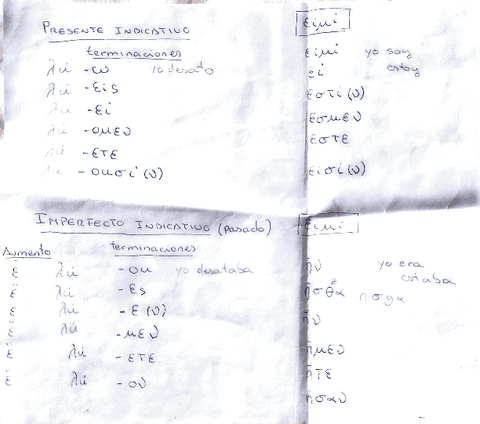 PRESENTE INDICATIVO
terminaciones
λύ -ω yo desato
λύ -εις
λύ -ει
λύ -ομεν
λύ -ετε
λύ -ουσι(ν)
εἰμί
εἰμί yo soy
εἶ estoy
ἐστί(ν)
ἐσμέν
ἐστέ
εἰσί(ν)
IMPERFECTO INDICATIVO (pasado)
Aumento terminaciones
ἐ λύ -ον yo desataba
ἐ λύ -ες
ἐ λύ -ε(ν)
ἐ λύ -μεν
ἐ λύ -ετε
ἐ λύ -ον
εἰμί
ἦν yo era
estaba
ἦσθα
ἦν
ἦμεν
ἦτε
ἦσαν